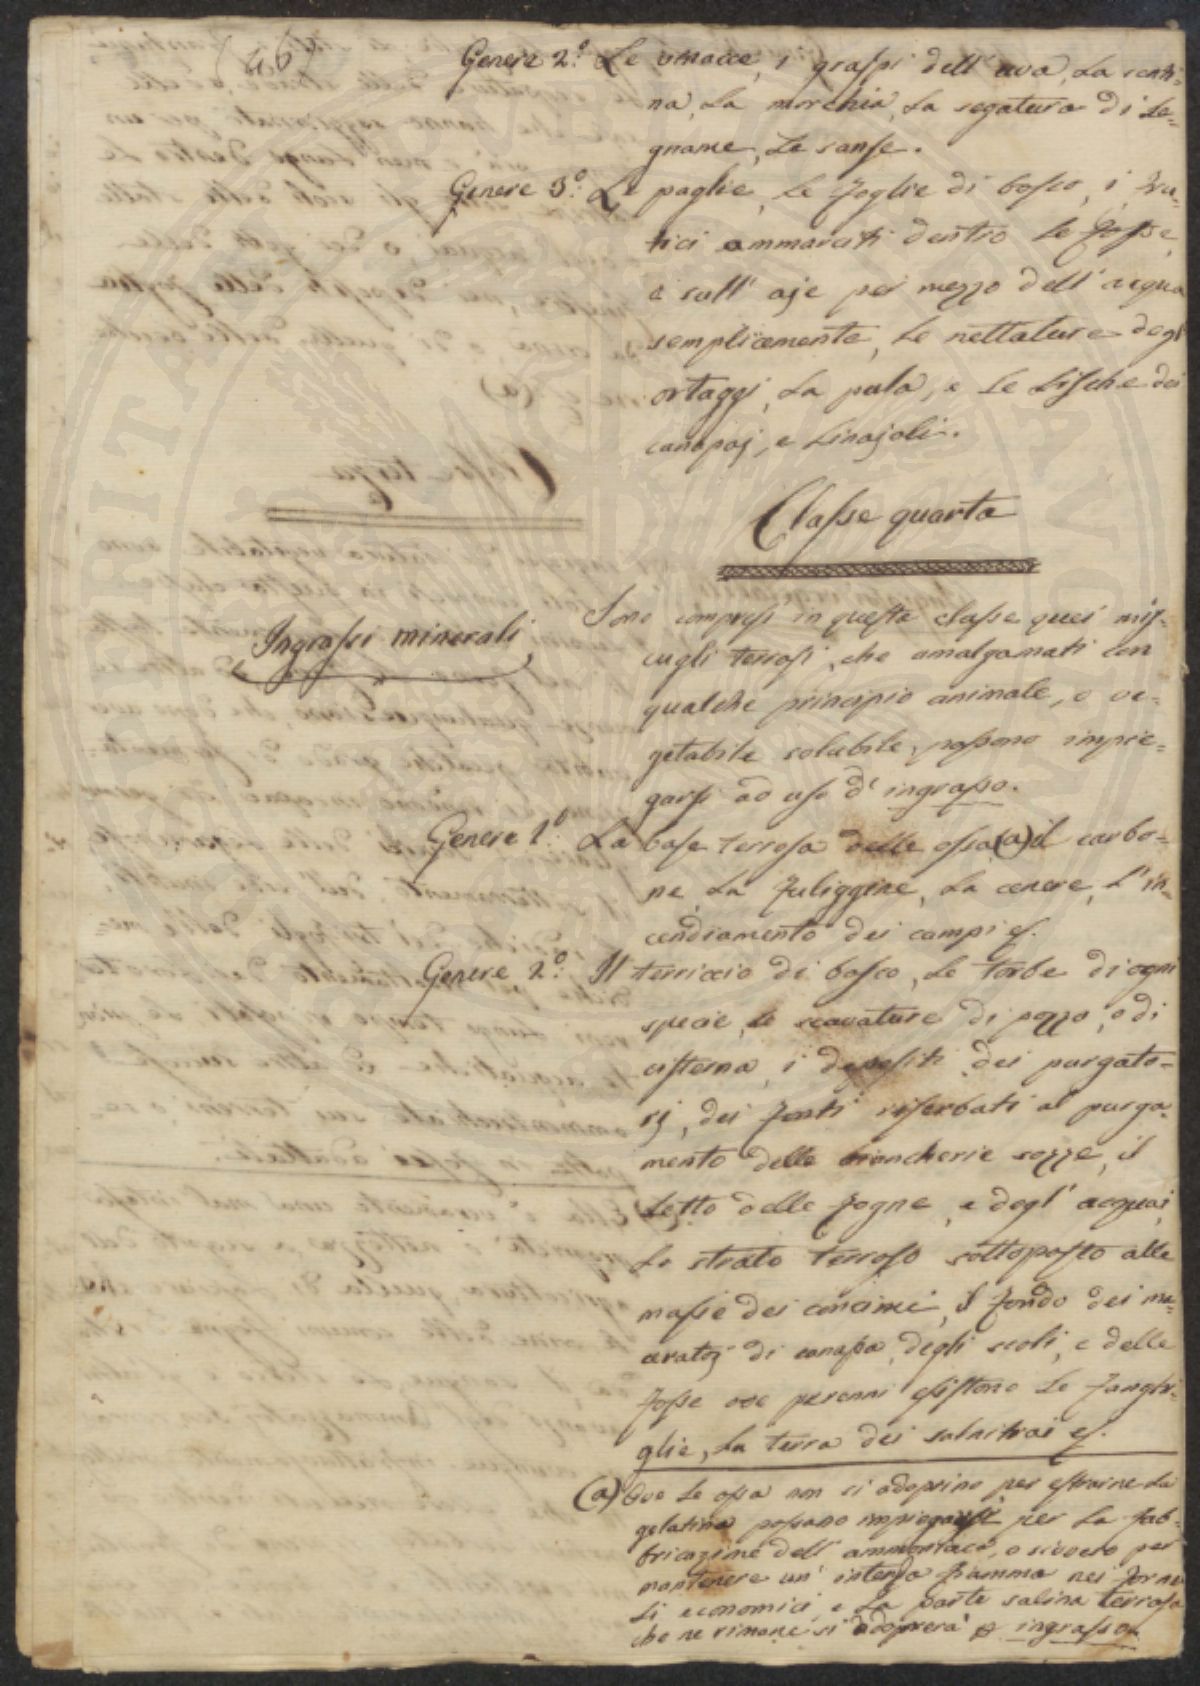 (46)
Genere 2.º Le vinacce, i graspi dell' uva, la senti-
na, la morchia, la segatura di le-
gname, le sanse.
Genere 3.º Le paglie, le foglie di bosco, i fru-
tici ammarciti dentro le fosse,
e sull' aje per mezzo dell' acqua
semplicemente, le nettature degl'
ortaggj, la pula, e le lische dei
canapaj, e linajoli.
Classe quarta
Ingrassi minerali
Sono compresi in questa classe quei mis-
cugli terrosi, che amalgamati con
qualche principio animale, o ve-
getabile solubile, possono impie-
garsi ad uso d' ingrasso.
Genere 1.º La base terrosa delle ossa (a) il carbo-
ne, la fuliggine, la cenere, l' in-
cendiamento dei campi
Genere 2.º Il terriccio di bosco, le torbe di ogni
specie, le scavature di pozzo, o di
cisterna, i depositi dei purgato-
rj, dei fonti riserbati al purga-
mento delle biancherie sozze, il
letto delle fogne, e degl' acquai,
lo strato terroso sottoposto alle
masse dei concimi, il fondo dei ma-
ceratoj di canapa, degli scoli, e delle
fosse ove perenni esistono le fanghi-
glie, la terra dei salnitrai
(a) Ove le ossa non si adoprino per estrarne la
gelatina possano impiegarsi per la fab-
bricazione dell' ammoniaca, o sivvero per
mantenere un' intensa fiamma nei fornel-
li economici, e la parte salina terrosa
che ne rimane si adoprerà p ingrasso.